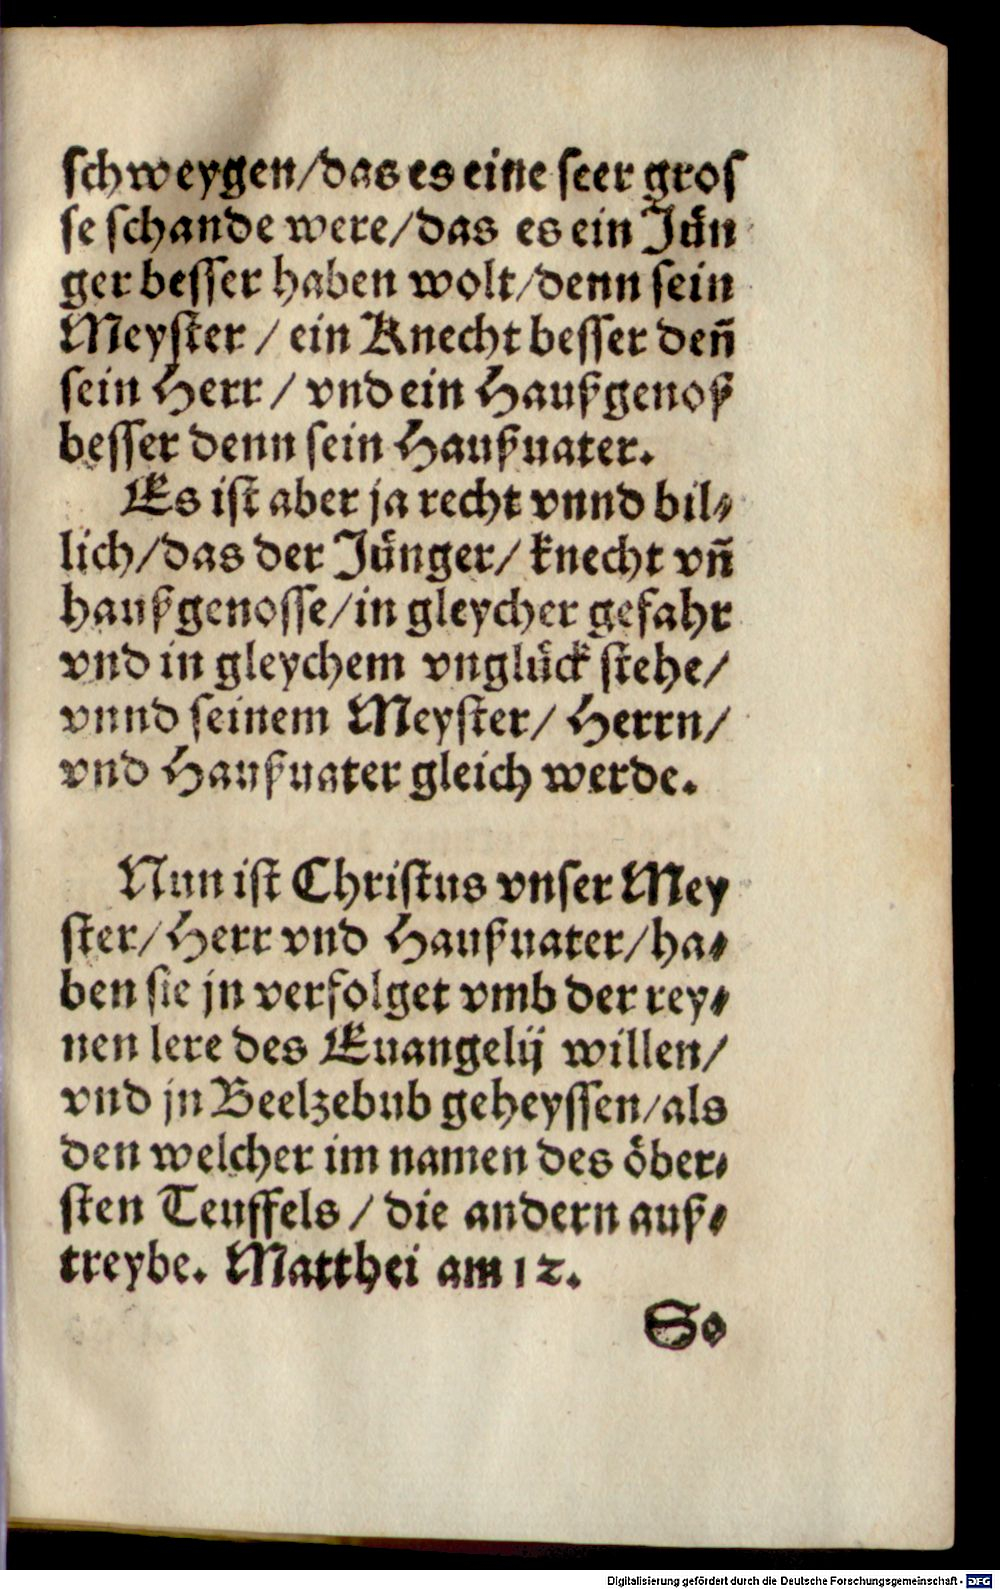 schweygen/das es eine seer gros
se schande were/das es ein Jün
ger besser haben wolt/denn sein
Meyster / ein Knecht besser deñ
sein Herr / vnd ein Haußgenoß
besser denn sein Haußuater.
Es ist aber ja recht vnnd bil⸗
lich/das der Jünger/ knecht vñ
haußgenosse/in gleycher gefahr
vnd in gleychem vnglück stehe/
vnnd seinem Meyster/ Herrn/
vnd Haußuater gleich werde.
Nun ist Christus vnser Mey
ster/Herr vnd Haußuater/ha⸗
ben sie jn verfolget vmb der rey⸗
nen lere des Euangelij willen/
vnd jn Beelzebub geheyssen/als
den welcher im namen des öber⸗
sten Teuffels / die andern auß⸗
treybe. Matthei am 12.
So
Digitalisierung gefördert durch die Deutsche Forschungsgemeinschaft - DFG